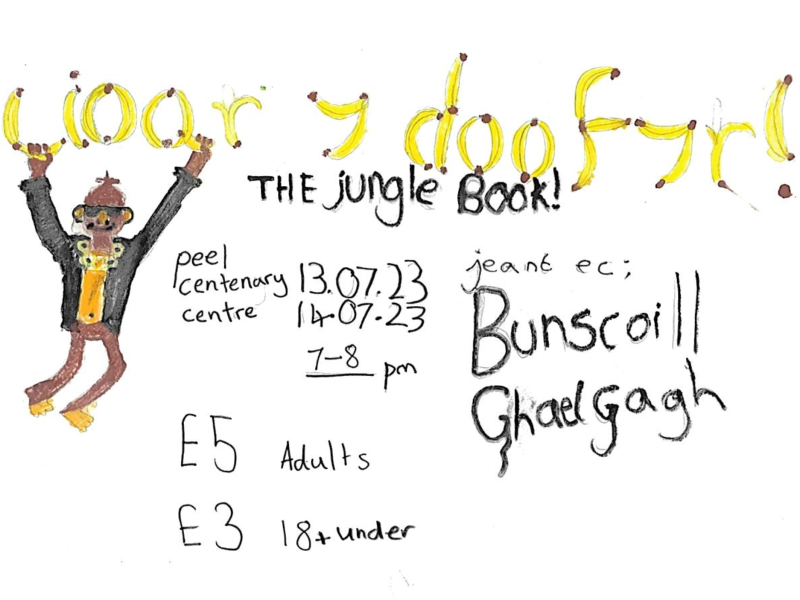 Lioor y doofyr!
THE jungle BOOK!
peel
centenary
centre
13.07.23
14.07.23
7-8 pm
jeant ec;
Bunscoill
Ghaelgagh
£5 Adults
£3 18+under